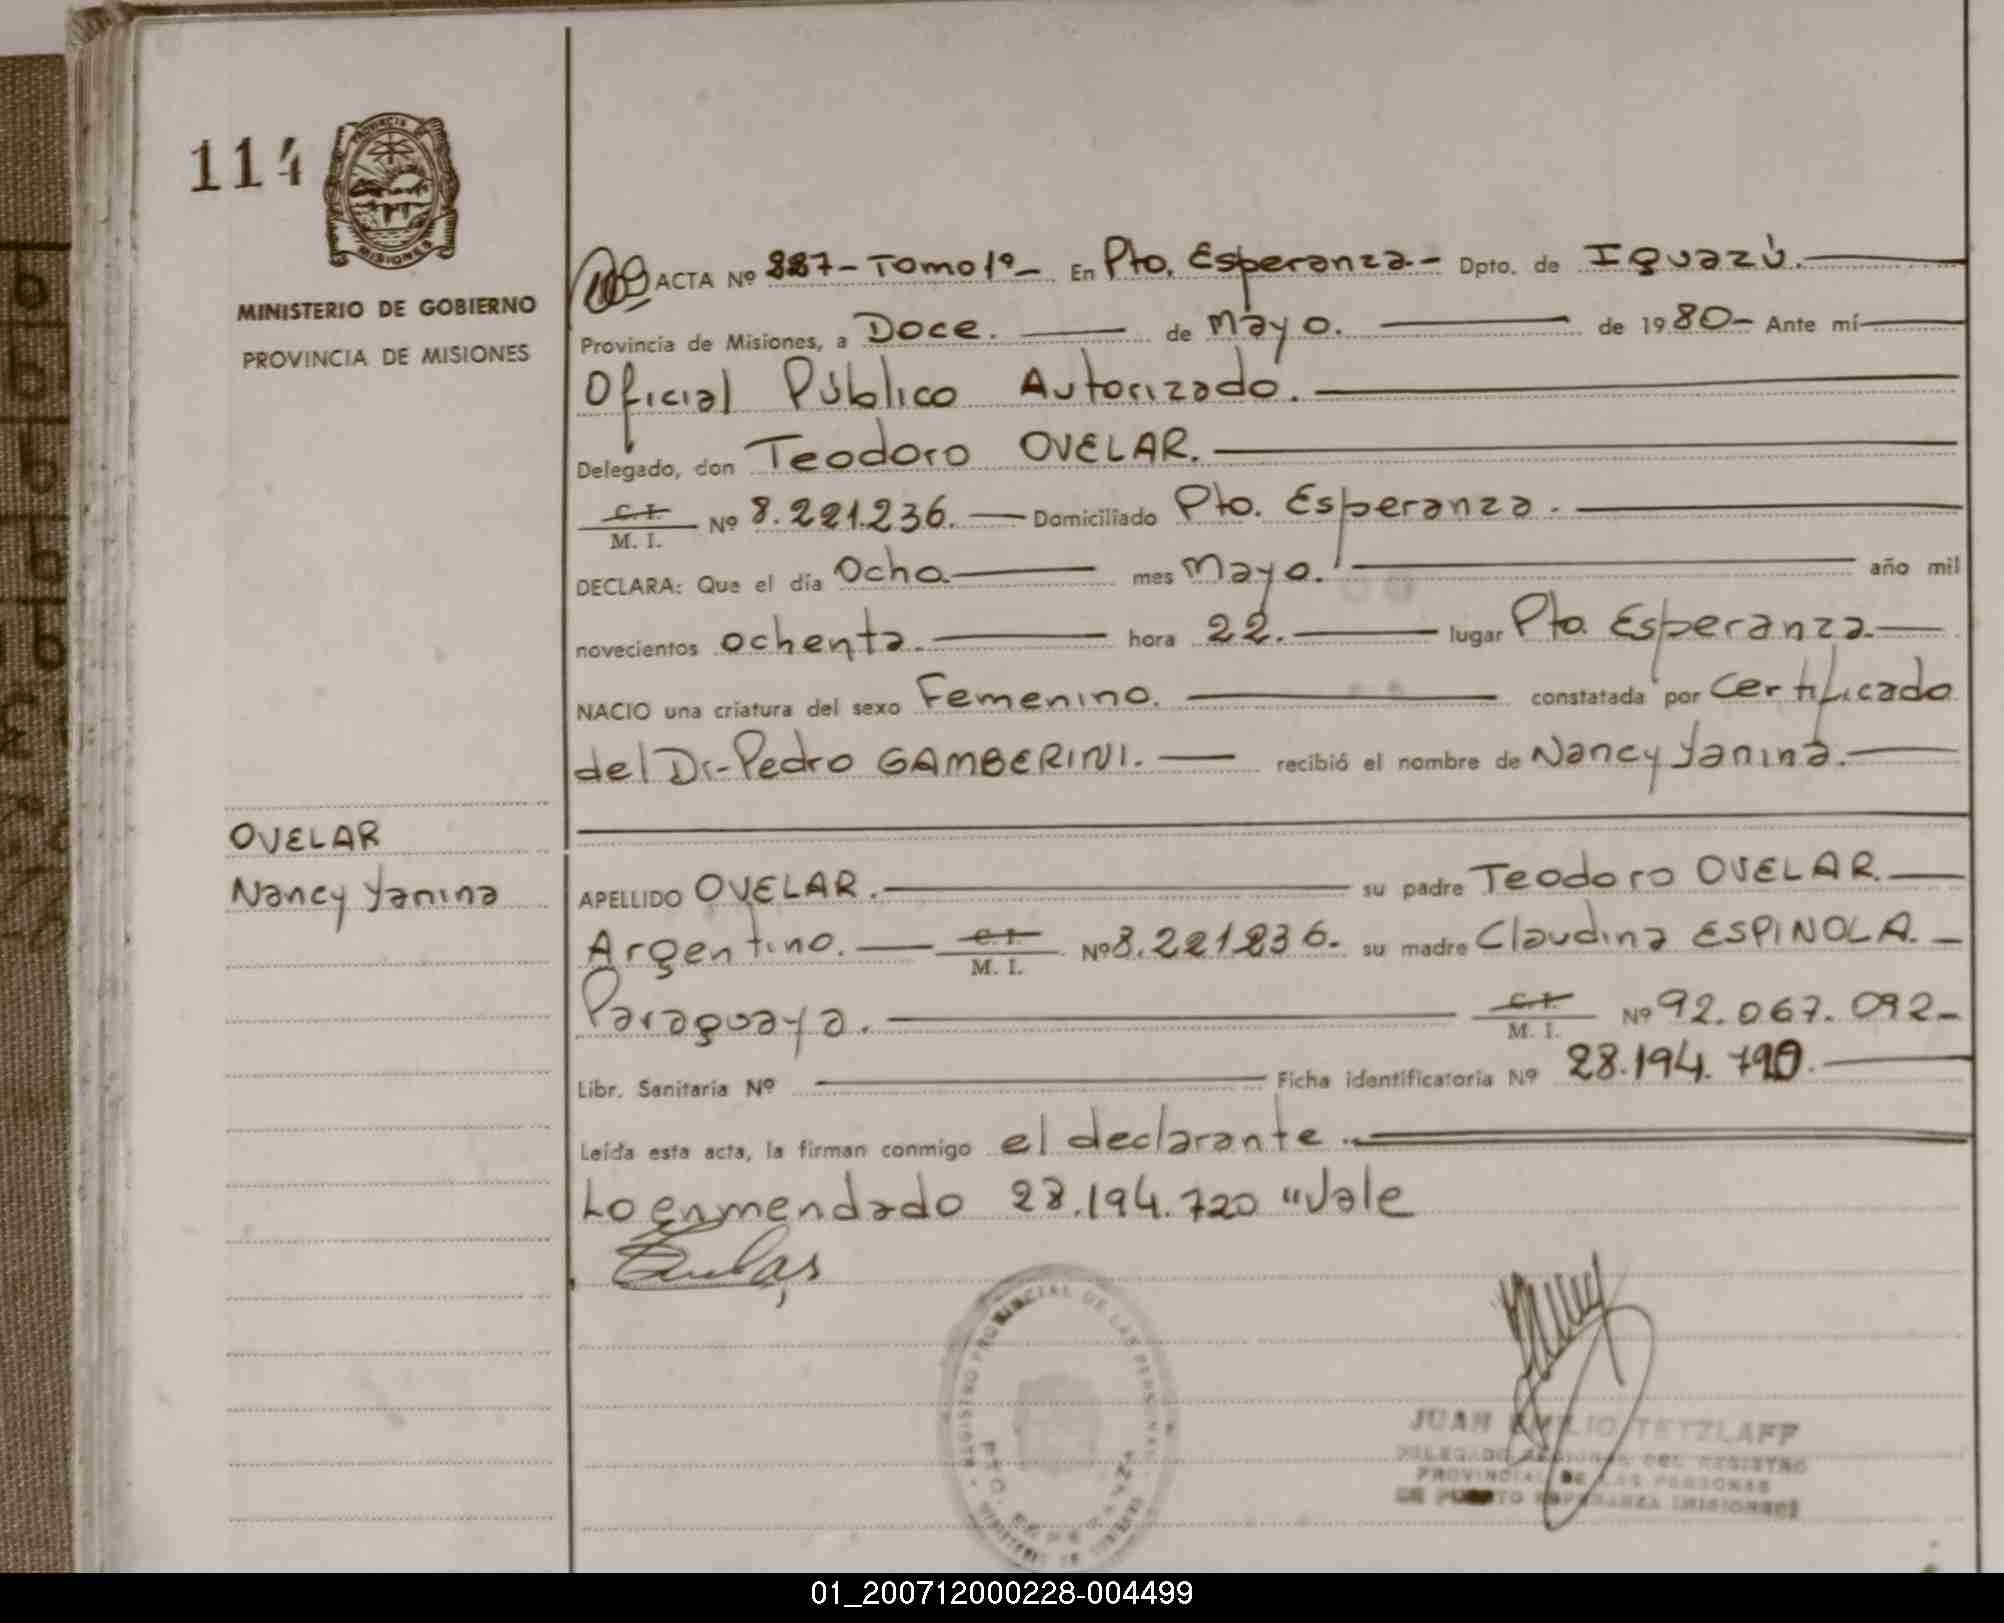 114
PROVINCIA
MISIONES
MINISTERIO DE GOBIERNO
PROVINCIA DE MISIONES
ACTA Nº 227-Tomo 1º- En Pto. Esperanza.- Dpto. de Iguazú.
Provincia de Misiones, a Doce. de Mayo. de 1980- Ante mí
Oficial Público Autorizado.
Delegado, don Teodoro OVELAR.
C. I. / M. I. Nº 8.221.236. Domiciliado Pto. Esperanza.
DECLARA: Que el día Ocho mes Mayo. año mil
novecientos ochenta. hora 22. lugar Pto. Esperanza.
NACIO una criatura del sexo Femenino. constatada por Certificado
del Dr. Pedro GAMBERINI. recibió el nombre de Nancy Yanina.
OVELAR
Nancy Yanina
APELLIDO OVELAR. su padre Teodoro OVELAR.
Argentino. C. I. / M. I. Nº 8.221236. su madre Claudina ESPINOLA.
Paraguaya. C. I. / M. I. Nº 92.067.092-
Libr. Sanitaria Nº Ficha identificatoria Nº 28.194.720.
Leída esta acta, la firman conmigo el declarante.
Lo enmendado 28.194.720 "Vale
REGISTRO PROVINCIAL DE LAS PERSONAS
PTO. ESPERANZA
MINISTERIO DE GOBIERNO
JUAN EMILIO TETZLAFF
DELEGADO REGIONAL DEL REGISTRO
PROVINCIAL DE LAS PERSONAS
DE PUERTO ESPERANZA (MISIONES)
01_200712000228-004499